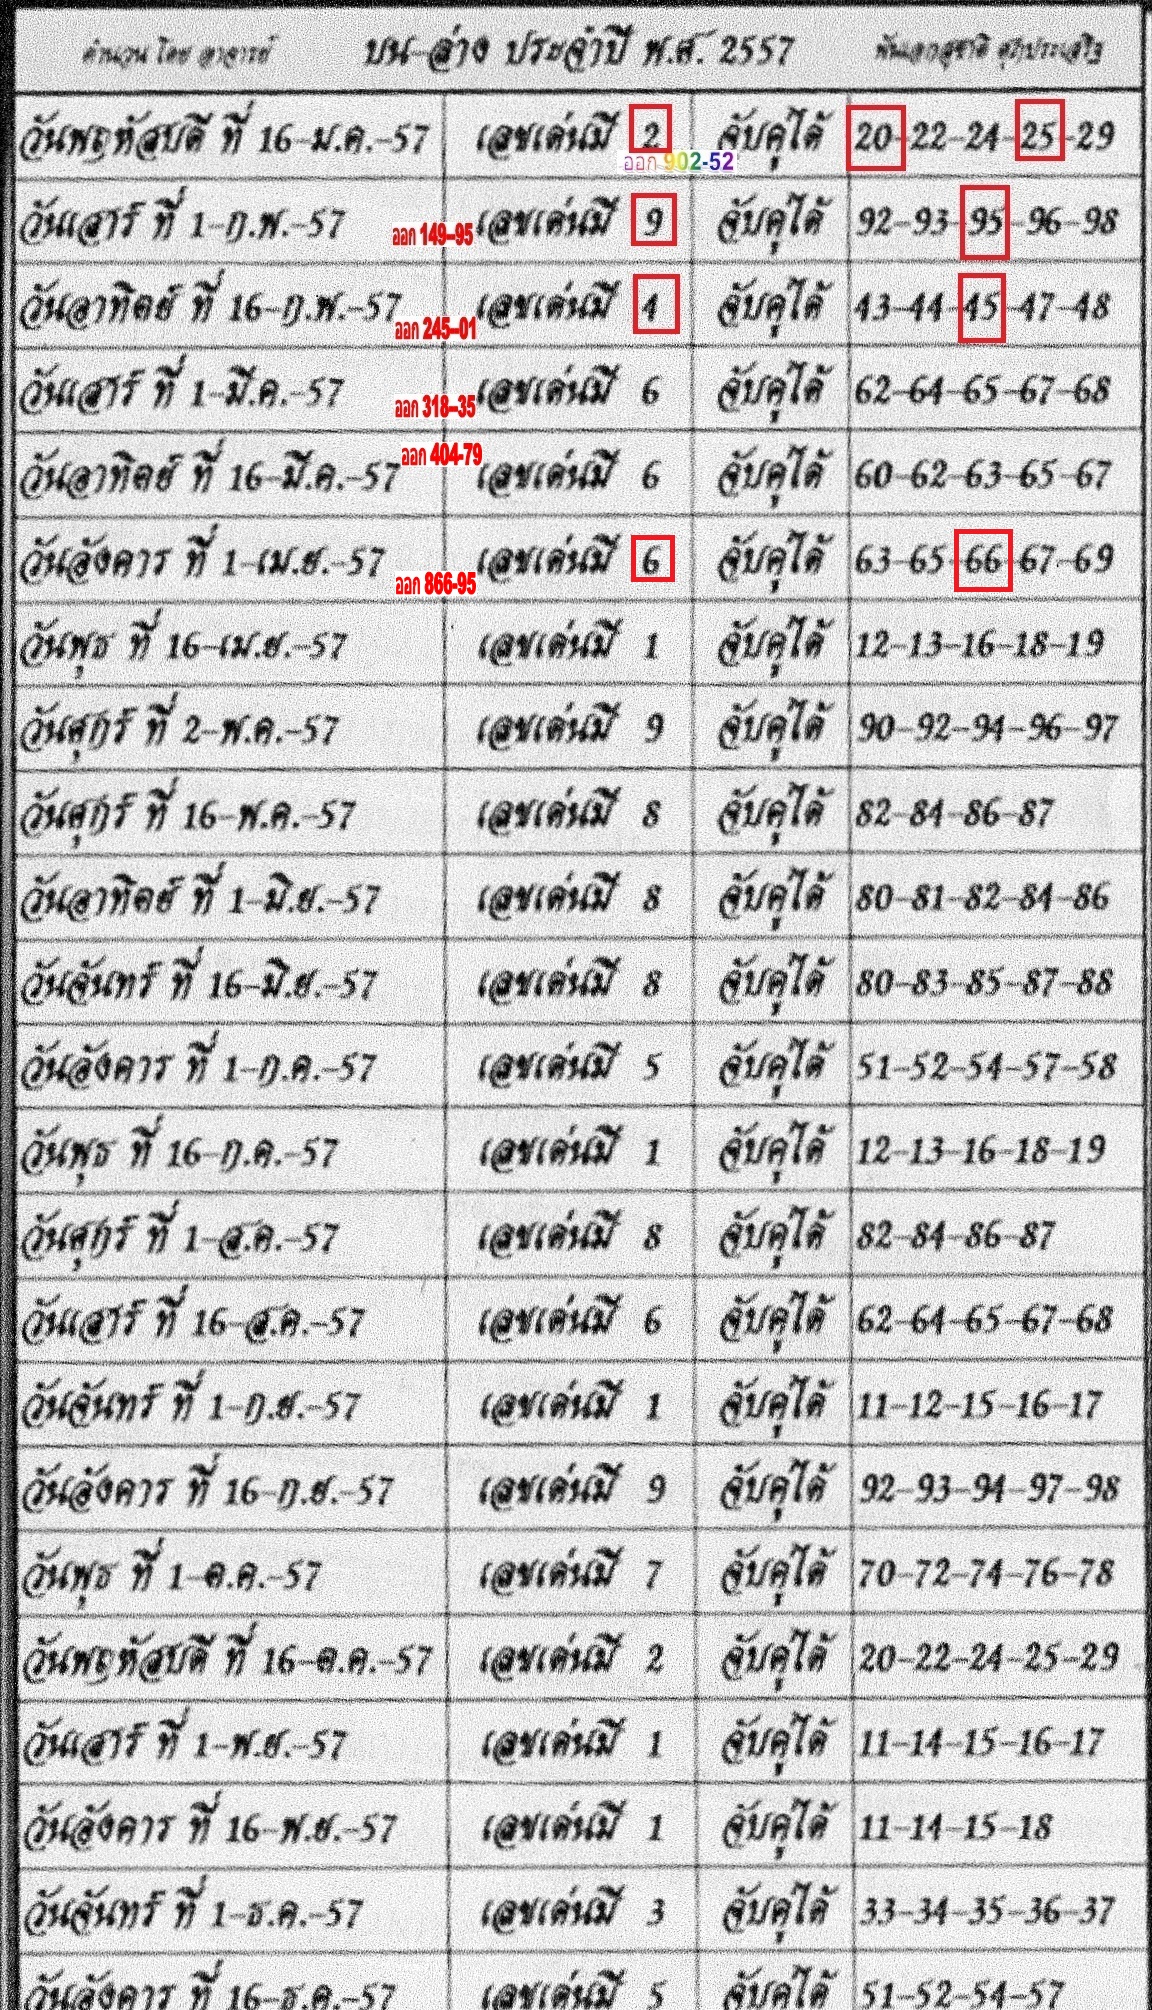 คำนวน โดย อาจารย์ บน-ล่าง ประจำปี พ.ศ. 2557 พันเอกสุชาติ ศุภประเสริฐ
วันพฤหัสบดี ที่ 16-ม.ค.-57 เลขเด่นมี 2 จับคู่ได้ 20-22-24-25-29
ออก 902-52
วันเสาร์ ที่ 1-ก.พ.-57 เลขเด่นมี 9 จับคู่ได้ 92-93-95-96-98
ออก 149-95
วันอาทิตย์ ที่ 16-ก.พ.-57 เลขเด่นมี 4 จับคู่ได้ 43-44-45-47-48
ออก 245-01
วันเสาร์ ที่ 1-มี.ค.-57 เลขเด่นมี 6 จับคู่ได้ 62-64-65-67-68
ออก 318-35
ออก 404-79
วันอาทิตย์ ที่ 16-มี.ค.-57 เลขเด่นมี 6 จับคู่ได้ 60-62-63-65-67
วันอังคาร ที่ 1-เม.ย.-57 เลขเด่นมี 6 จับคู่ได้ 63-65-66-67-69
ออก 866-95
วันพุธ ที่ 16-เม.ย.-57 เลขเด่นมี 1 จับคู่ได้ 12-13-16-18-19
วันศุกร์ ที่ 2-พ.ค.-57 เลขเด่นมี 9 จับคู่ได้ 90-92-94-96-97
วันศุกร์ ที่ 16-พ.ค.-57 เลขเด่นมี 8 จับคู่ได้ 82-84-86-87
วันอาทิตย์ ที่ 1-มิ.ย.-57 เลขเด่นมี 8 จับคู่ได้ 80-81-82-84-86
วันจันทร์ ที่ 16-มิ.ย.-57 เลขเด่นมี 8 จับคู่ได้ 80-83-85-87-88
วันอังคาร ที่ 1-ก.ค.-57 เลขเด่นมี 5 จับคู่ได้ 51-52-54-57-58
วันพุธ ที่ 16-ก.ค.-57 เลขเด่นมี 1 จับคู่ได้ 12-13-16-18-19
วันศุกร์ ที่ 1-ส.ค.-57 เลขเด่นมี 8 จับคู่ได้ 82-84-86-87
วันเสาร์ ที่ 16-ส.ค.-57 เลขเด่นมี 6 จับคู่ได้ 62-64-65-67-68
วันจันทร์ ที่ 1-ก.ย.-57 เลขเด่นมี 1 จับคู่ได้ 11-12-15-16-17
วันอังคาร ที่ 16-ก.ย.-57 เลขเด่นมี 9 จับคู่ได้ 92-93-94-97-98
วันพุธ ที่ 1-ต.ค.-57 เลขเด่นมี 7 จับคู่ได้ 70-72-74-76-78
วันพฤหัสบดี ที่ 16-ต.ค.-57 เลขเด่นมี 2 จับคู่ได้ 20-22-24-25-29
วันเสาร์ ที่ 1-พ.ย.-57 เลขเด่นมี 1 จับคู่ได้ 11-14-15-16-17
วันอังคาร ที่ 16-พ.ย.-57 เลขเด่นมี 1 จับคู่ได้ 11-14-15-18
วันจันทร์ ที่ 1-ธ.ค.-57 เลขเด่นมี 3 จับคู่ได้ 33-34-35-36-37
วันอังคาร ที่ 16-ธ.ค.-57 เลขเด่นมี 5 จับคู่ได้ 51-52-54-57